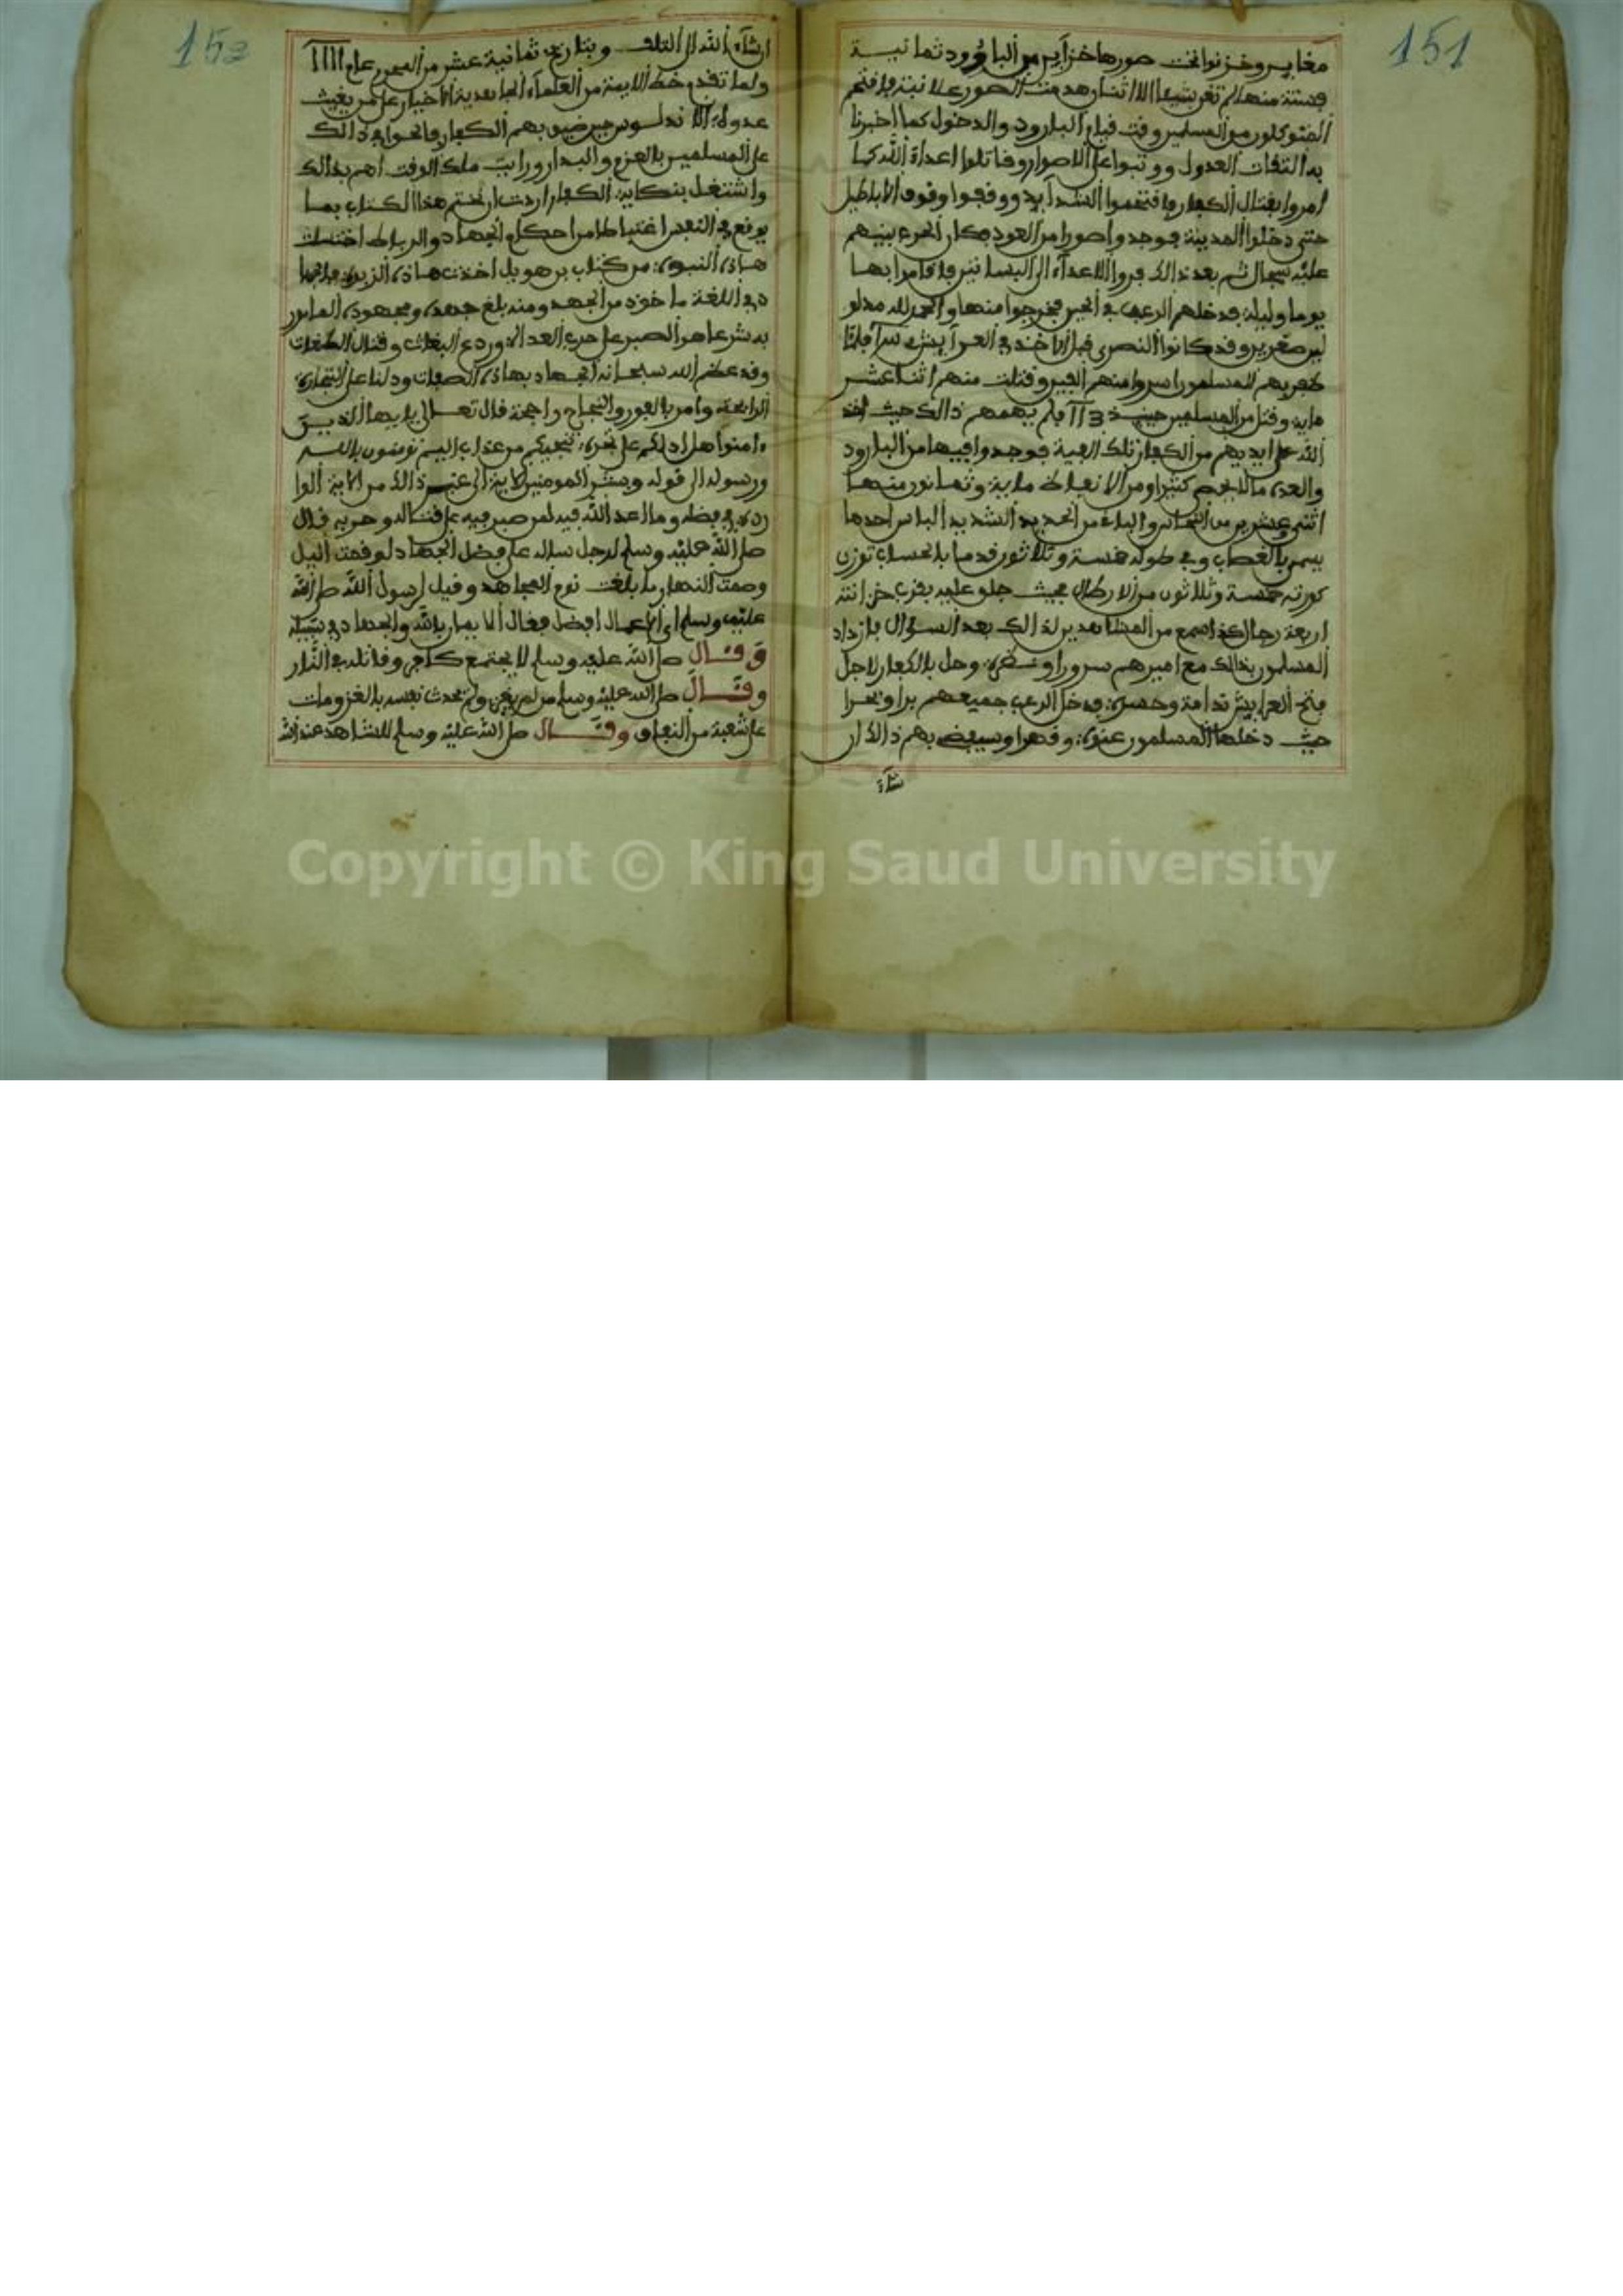 151
مغاير وخزنوا تحت صورها خزاين من البارود ثمانية
فبستة منها لم تغن شيئا الا اثنان هدمت الصور علانية فاقتحم
المتوكلون من المسلمين وقت قيام البارود والدخول كما اخبرنا
به الثقات العدول ووثبوا على الاصوار وقاتلوا اعداء الله كما
امروا بقتال الكفار واقتحموا الشدايد ووقفوا وقوف الاباطيل
حتى دخلوا المدينة فوجدوا صورا من العود فكان الحرب بينهم
عليه سجال ثم بعد ذالك فروا الاعداء الى البساتين فاقاموا بها
يوما وليلة فدخلهم الرعب في الحين فخرجوا منها والحمد لله مدلو
لين صغرين وقد كانوا النصرى قبل الاخذ في العرايش
ظفر بهم المسلمون اسروا منهم الفين وقتلت منهم اثنا عشر
ماية وقتل من المسلمين حينيذ 113 فلم يهمهم ذالك حيث اخذ
الله على ايديهم من الكفار تلك الفية فوجدوا فيها من البارود
والعدة مالا يحصى كثيرا ومن الانفاظ ماية وثمانون منها
اثنى وعشرين من النحاس والباقي من الحديد الشديد الباس احدها
يسمى بالغصاب وفي طوله خمسة وثلاثون قدما بالحساب توزن
كورته خمسة وثلاثون من الارطال بحيث حلق عليه بقرب خزانته
اربعة رجال كذا سمع من المشاهدين لذالك بعد السؤال فازداد
المسلمون بذالك مع اميرهم سرورا وحل بالكفار لاجل
فتح العرايش ندامة وحسرة فدخل الرعب جميعهم برا وبحرا
حيث دخلها المسلمون عنوة وقهرا وسيفضى بهم ذالك ان
شاء
152
ان شاء الله الى التلف وبتاريخ ثمانية عشر من المحرم عام 1111
ولما تقدم خط الايمة من العلماء الجابعدية الاخبار على من يغيث
عدوة الاندلوس حين ضيق بهم الكفار والحوا في ذالك
على المسلمين بالعزم والبدار ورايت ملك الوقت اهم بذالك
واشتغل بنكاية الكفار اردت ان نختم هذا الكتاب بما
يوقع في النفس اغتباطا من احكام الجهاد والرباط اختلست
هاذه النبوة من كتاب ابن هويل اخذت هاذه الزبدة
في اللغة ماخوذ من الجهد ومنه بلغ جهده ومجهوده المامور
به شرعا هو الصبر على حرب العداة وردع البغاث وقتال الطغات
وقد عظم الله سبحانه الجهاد بهاذه الصفات ودلنا على التجارة
الرابحة وامر بالفوز والنجاح راجحة قال تعالى يايها الذين
ءامنوا هل ادلكم على تجرة تنجيكم من عذاب اليم تومنون بالله
ورسوله الى قوله وبشر المومنين الاية الى غير ذالك من الاية الوا
ردة في فضله وما اعد الله فيه لمن صبر فيه على قتاله وحربه قال
صلى الله عليه وسلم لرجل ساله على فضل الجهاد لو قمت اليل
وصمت النهار ما بلغت نوم المجاهد وقيل لرسول الله صلى الله
عليه وسلم اي الاعمال افضل فقال الايمان بالله والجهاد في سبيله
وقال صلى الله عليه وسلم لا يجتمع كافر وقاتله في النار
وقال صلى الله عليه وسلم من لم يغز ولم يحدث نفسه بالغزو مات
على شعبة من النفاق وقال صلى الله عليه وسلم للشاهد عند الله
Copyright © King Saud University